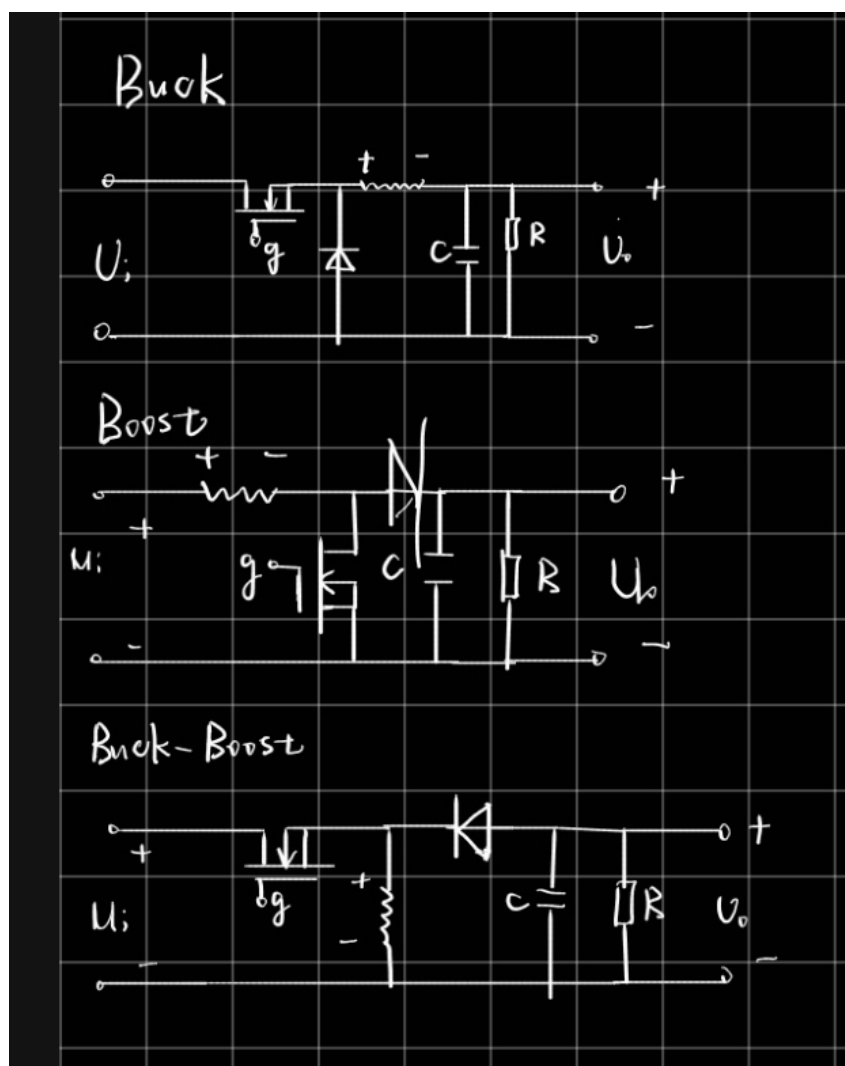 Buck
+ -
+
g
C
R
Ui
Uo
-
Boost
+ -
+
+
ui
g
C
R
Uo
-
-
Buck-Boost
+
+
+
g
C
R
Ui
Uo
-
-
-